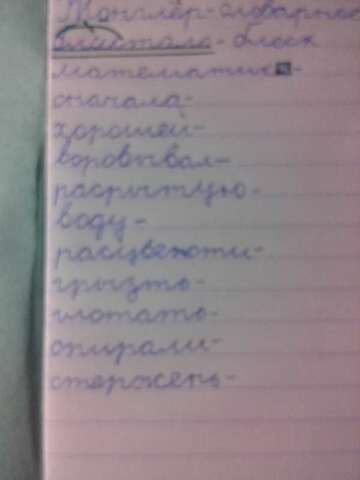 Жонглёр-словарное
блистало-блеск
математик-
сначала-
хорошей-
воровывал-
раскрытую-
воду-
расцвекоти-
грызть-
глотать-
опирали-
стержень-